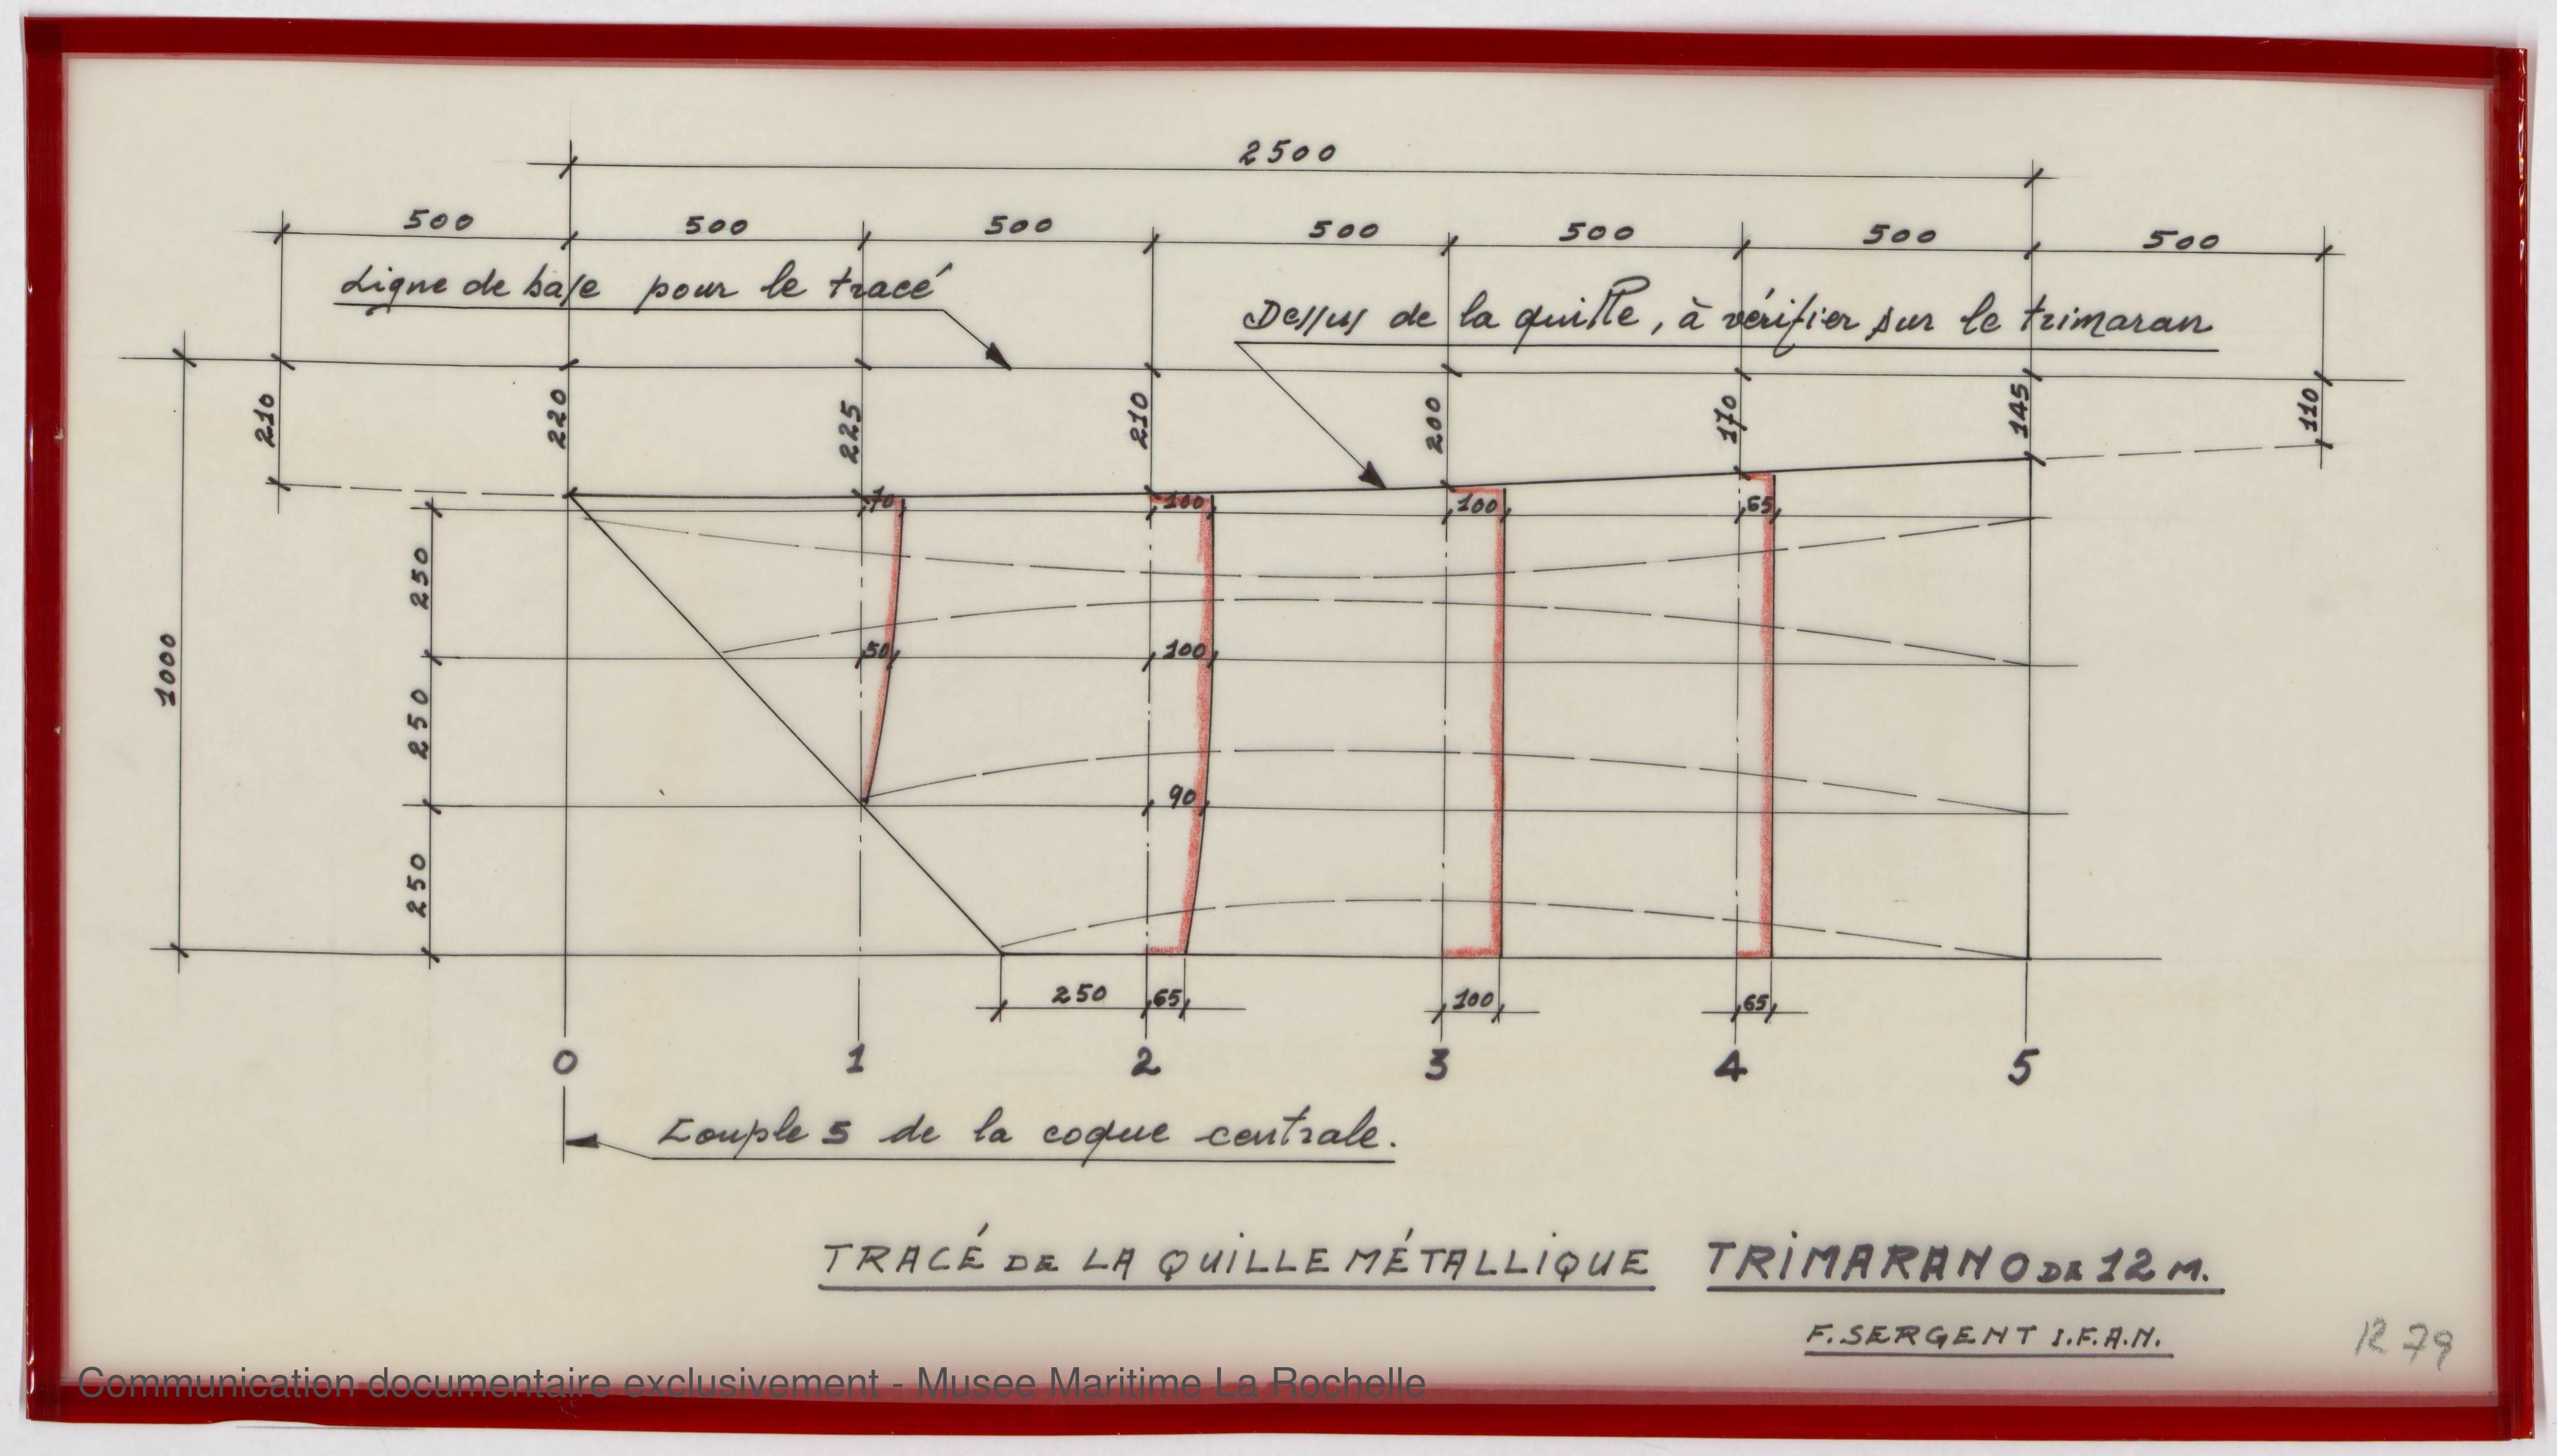 2500
500 500 500 500 500 500 500
Ligne de base pour le tracé
Dessus de la quille, à vérifier sur le trimaran
210 220 225 210 200 170 145 110
70 100 100 65
250
50 100
1000
250
90
250
250 65 100 65
0 1 2 3 4 5
Couple 5 de la coque centrale.
TRACÉ DE LA QUILLE MÉTALLIQUE TRIMARANO DE 12 M.
F. SERGENT I.F.A.N.
R 79
Communication documentaire exclusivement - Musee Maritime La Rochelle